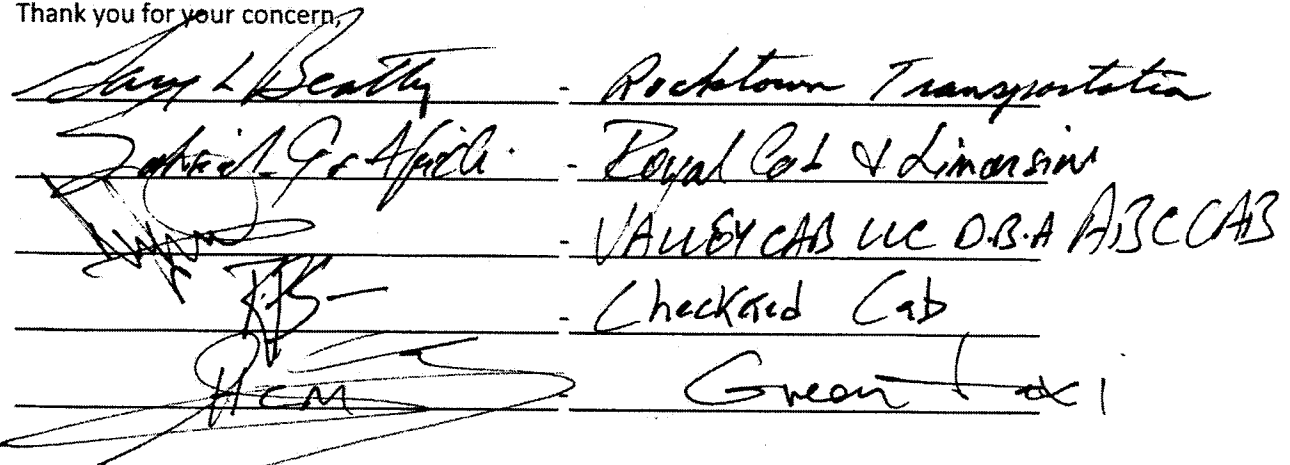 Thank you for your concern,
Gary L Beatty - Rocktown Transportation
- Royal Cab & Limousine
- VALLEY CAB LLC D.B.A ABC CAB
- Checkered Cab
HCM - Green taxi